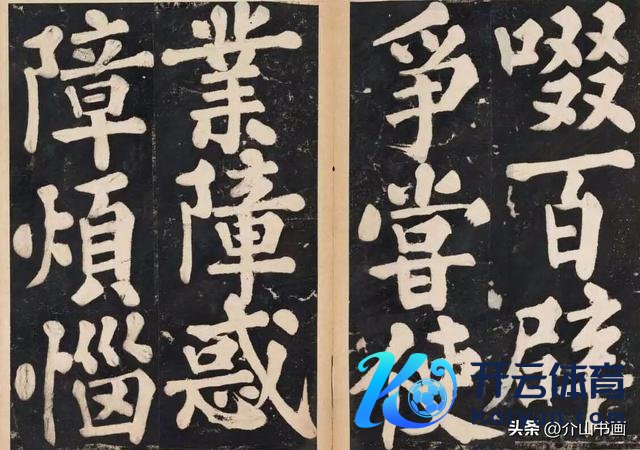 啜百辟
爭嘗使
業障惑
障煩惱
开云体育
头条 @介山书画